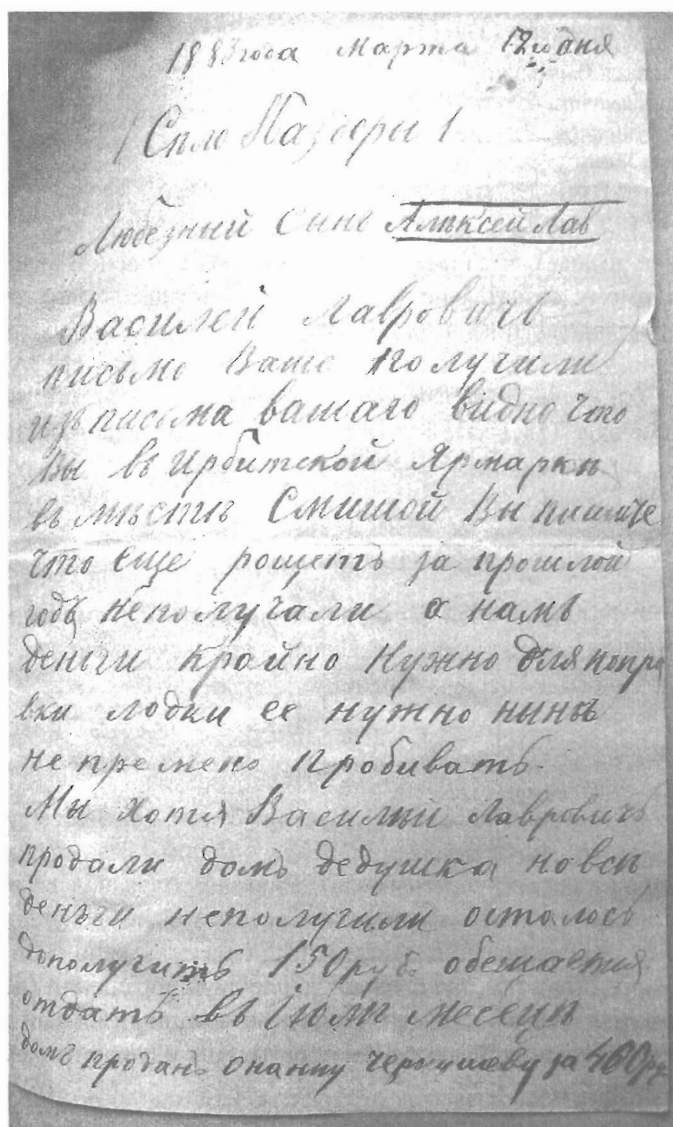 1883 года Марта 12го дня
Село
Любезный Сынъ Алѣксей Лав
Василей Лавровичъ
письмо Ваше получили
изъ писма вашаго видно что
Вы въ Ирбитской Ярмарки
въ мѣстѣ Смишой Вы пишите
что еще рощетъ за прошлой
годъ неполучали а намъ
деньги крайно нужно для попра
вки лодки ее нужно нынѣ
не премено пробивать.
Мы хотя Василѣй Лавровичъ
продали домъ дедушка но всѣ
деньги неполучили осталось
дополучить 150 руб. обещается
отдать въ Iюлѣ месецѣ
домъ проданъ за 460 ру